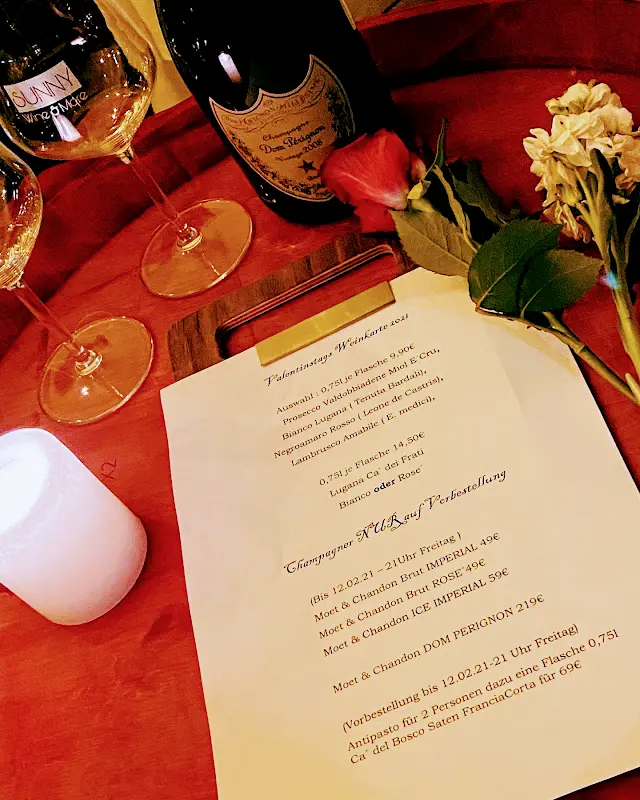 SUNNY
Wine & More
Champagne
Dom Pérignon
Vintage 2008
Valentinstags Weinkarte 2021
Auswahl : 0,75l je Flasche 9,90€
Prosecco Valdobbiadene Miol E´Cru,
Bianco Lugana ( Tenuta Bardali),
Negroamaro Rosso ( Leone de Castris),
Lambrusco Amabile ( E. medici),
0,75l je Flasche 14,50€
Lugana Ca´ dei Frati
Bianco oder Rose´
Champagner NUR auf Vorbestellung
(Bis 12.02.21 – 21Uhr Freitag )
Moet & Chandon Brut IMPERIAL 49€
Moet & Chandon Brut ROSE´49€
Moet & Chandon ICE IMPERIAL 59€
Moet & Chandon DOM PERIGNON 219€
(Vorbestellung bis 12.02.21-21 Uhr Freitag)
Antipasto für 2 Personen dazu eine Flasche 0,75l
Ca´ del Bosco Saten FranciaCorta für 69€